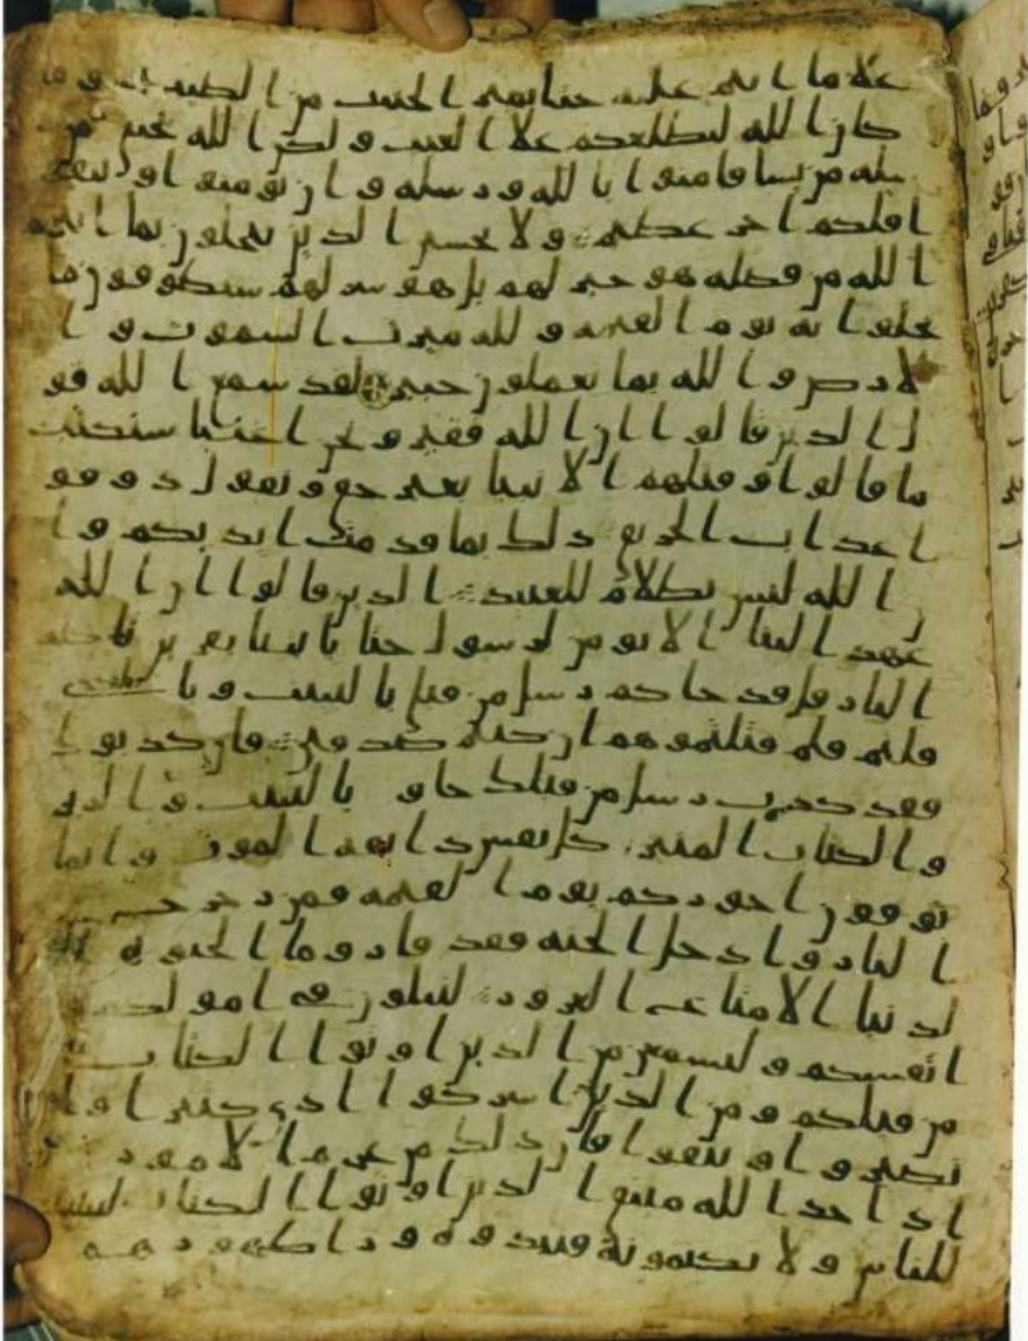 علا ما انتم عليه حتا يميز الخبيث من الطيب و ما
كان الله ليطلعكم علا الغيب و لكن الله يجتبي من
رسله من يشا فامنوا بالله و رسله و ان تومنوا و تتقو
ا فلكم اجر عظيم و لا يحسبن الذين يبخلون بما اتيهم
الله من فضله هو خير لهم بل هو شر لهم سيطوقون ما
بخلوا به يوم القيمه و لله ميرث السموت و ا
لارض و الله بما تعملون خبير لقد سمع الله قو
ل الذين قالوا ان الله فقير و نحن اغنيا سنكتب
ما قالوا و قتلهم الانبيا بغير حق و نقول ذوقو
ا عذاب الحريق ذلك بما قدمت ايديكم و ا
ن الله ليس بظلام للعبيد الذين قالوا ان الله
عهد الينا الا نومن لرسول حتا ياتينا بقربن تاكله
النار قل قد جاكم رسل من قبلي بالبينت و بالذي
قلتم فلم قتلتموهم ان كنتم صدقين فان كذبوك
فقد كذب رسل من قبلك جاو بالبينت و الزبر
و الكتاب المنير كل نفس ذايقه الموت و انما
توفون اجوركم يوم القيمه فمن زحزح عن
النار و ادخل الجنه فقد فاز و ما الحيوه ا
لدنيا الا متاع الغرور لتبلون في امولكم و
انفسكم و لتسمعن من الذين اوتوا الكتاب
من قبلكم و من الذين اشركوا اذي كثيرا و ان
تصبروا و تتقوا فان ذلك من عزم الامور و
اذ اخذ الله ميثق الذين اوتوا الكتاب لتبيننه
للناس و لا تكتمونه فنبذوه ورا ظهورهم